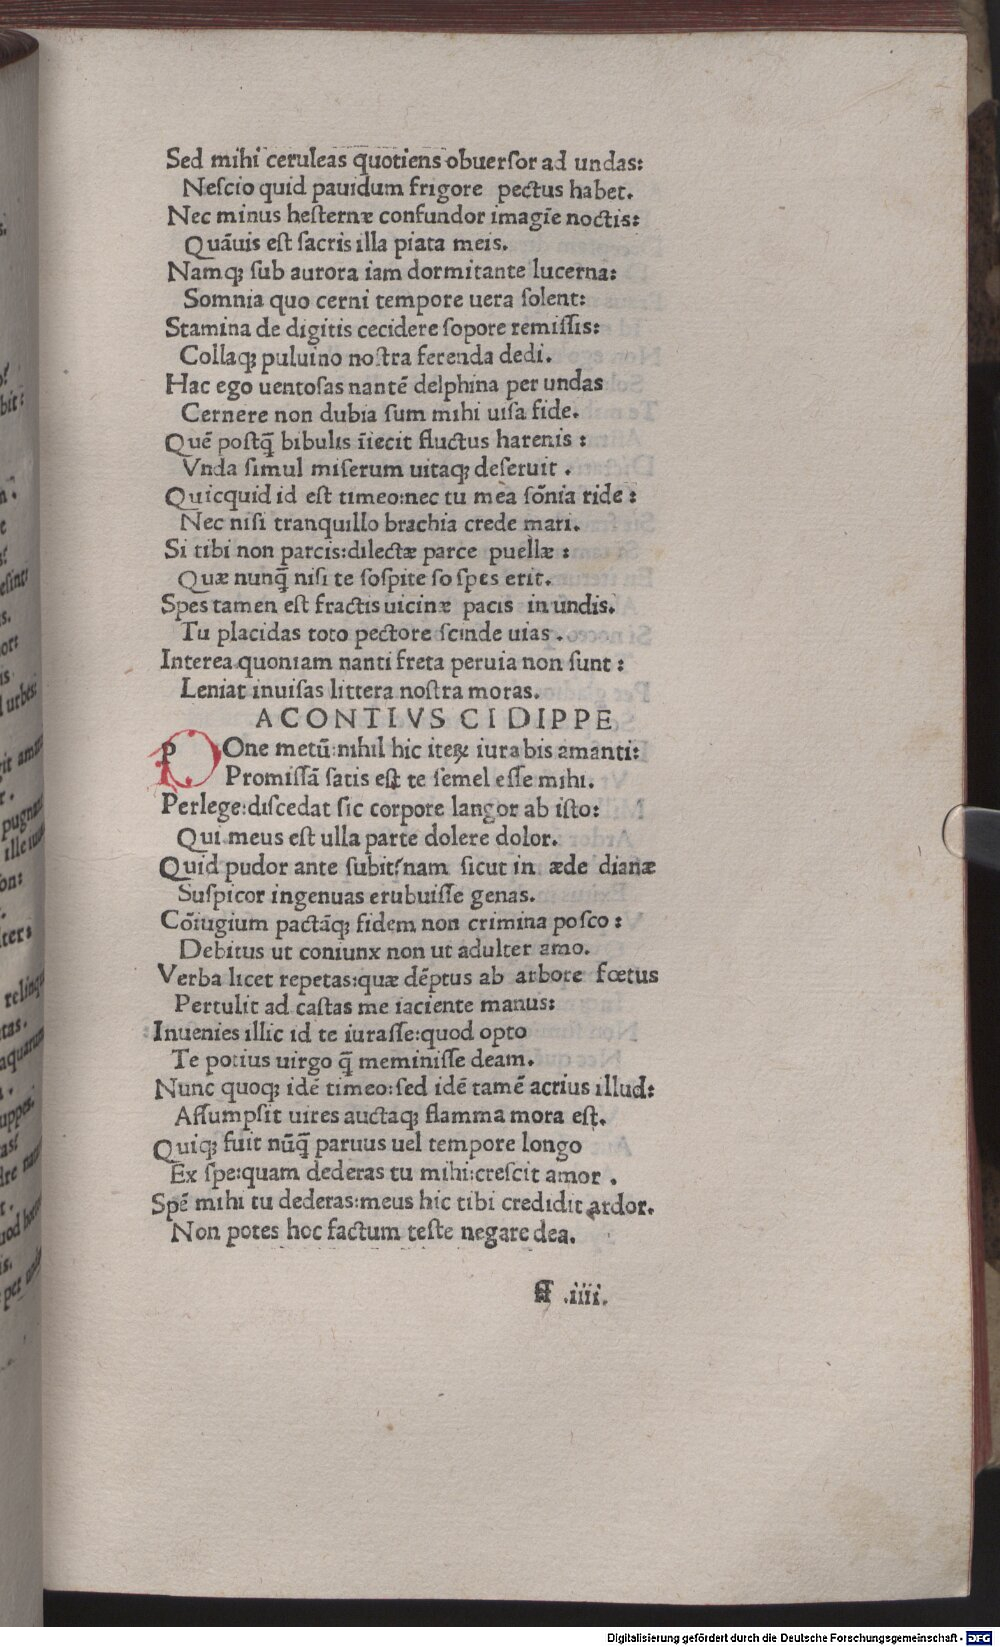 Sed mihi ceruleas quotiens obuerſor ad undas:
Neſcio quid pauidum frigore pectus habet.
Nec minus heſternæ confundor imagīe noctis:
Quāuis eſt ſacris illa piata meis.
Namqꝫ ſub aurora iam dormitante lucerna:
Somnia quo cerni tempore uera ſolent:
Stamina de digitis cecidere ſopore remiſſis:
Collaqꝫ puluino noſtra ferenda dedi.
Hac ego uentoſas nantē delphina per undas
Cernere non dubia ſum mihi uiſa fide.
Quē poſtq̄ bibulis īiecit fluctus harenis :
Vnda ſimul miſerum uitaqꝫ deſeruit .
Quicquid id eſt timeo:nec tu mea ſōnia ride :
Nec niſi tranquillo brachia crede mari.
Si tibi non parcis:dilectæ parce puellæ :
Quæ nunq̄ niſi te ſoſpite ſo ſpes erit.
Spes tamen eſt fractis uicinæ pacis in undis.
Tu placidas toto pectore ſcinde uias .
Interea quoniam nanti freta peruia non ſunt :
Leniat inuiſas littera noſtra moras.
ACONTIVS CIDIPPE
P One metū:nihil hic iteꝝ iura bis amanti:
Promiſſā ſatis eſt te ſemel eſſe mihi.
Perlege:diſcedat ſic corpore langor ab iſto:
Qui meus eſt ulla parte dolere dolor.
Quid pudor ante ſubit?nam ſicut in æde dianæ
Suſpicor ingenuas erubuiſſe genas.
Cōiugium pactāqꝫ fidem non crimina poſco :
Debitus ut coniunx non ut adulter amo.
Verba licet repetas:quæ dēptus ab arbore fœtus
Pertulit ad caſtas me iaciente manus:
Inuenies illic id te iuraſſe:quod opto
Te potius uirgo q̄ meminiſſe deam.
Nunc quoqꝫ idē timeo:ſed idē tamē acrius illud:
Aſſumpſit uires auctaqꝫ flamma mora eſt.
Quiqꝫ fuit nūq̄ paruus uel tempore longo
Ex ſpe:quam dederas tu mihi:creſcit amor .
Spē mihi tu dederas:meus hic tibi credidit ardor.
Non potes hoc factum teſte negare dea.
.iiii.
Digitalisierung gefördert durch die Deutsche Forschungsgemeinschaft - DFG